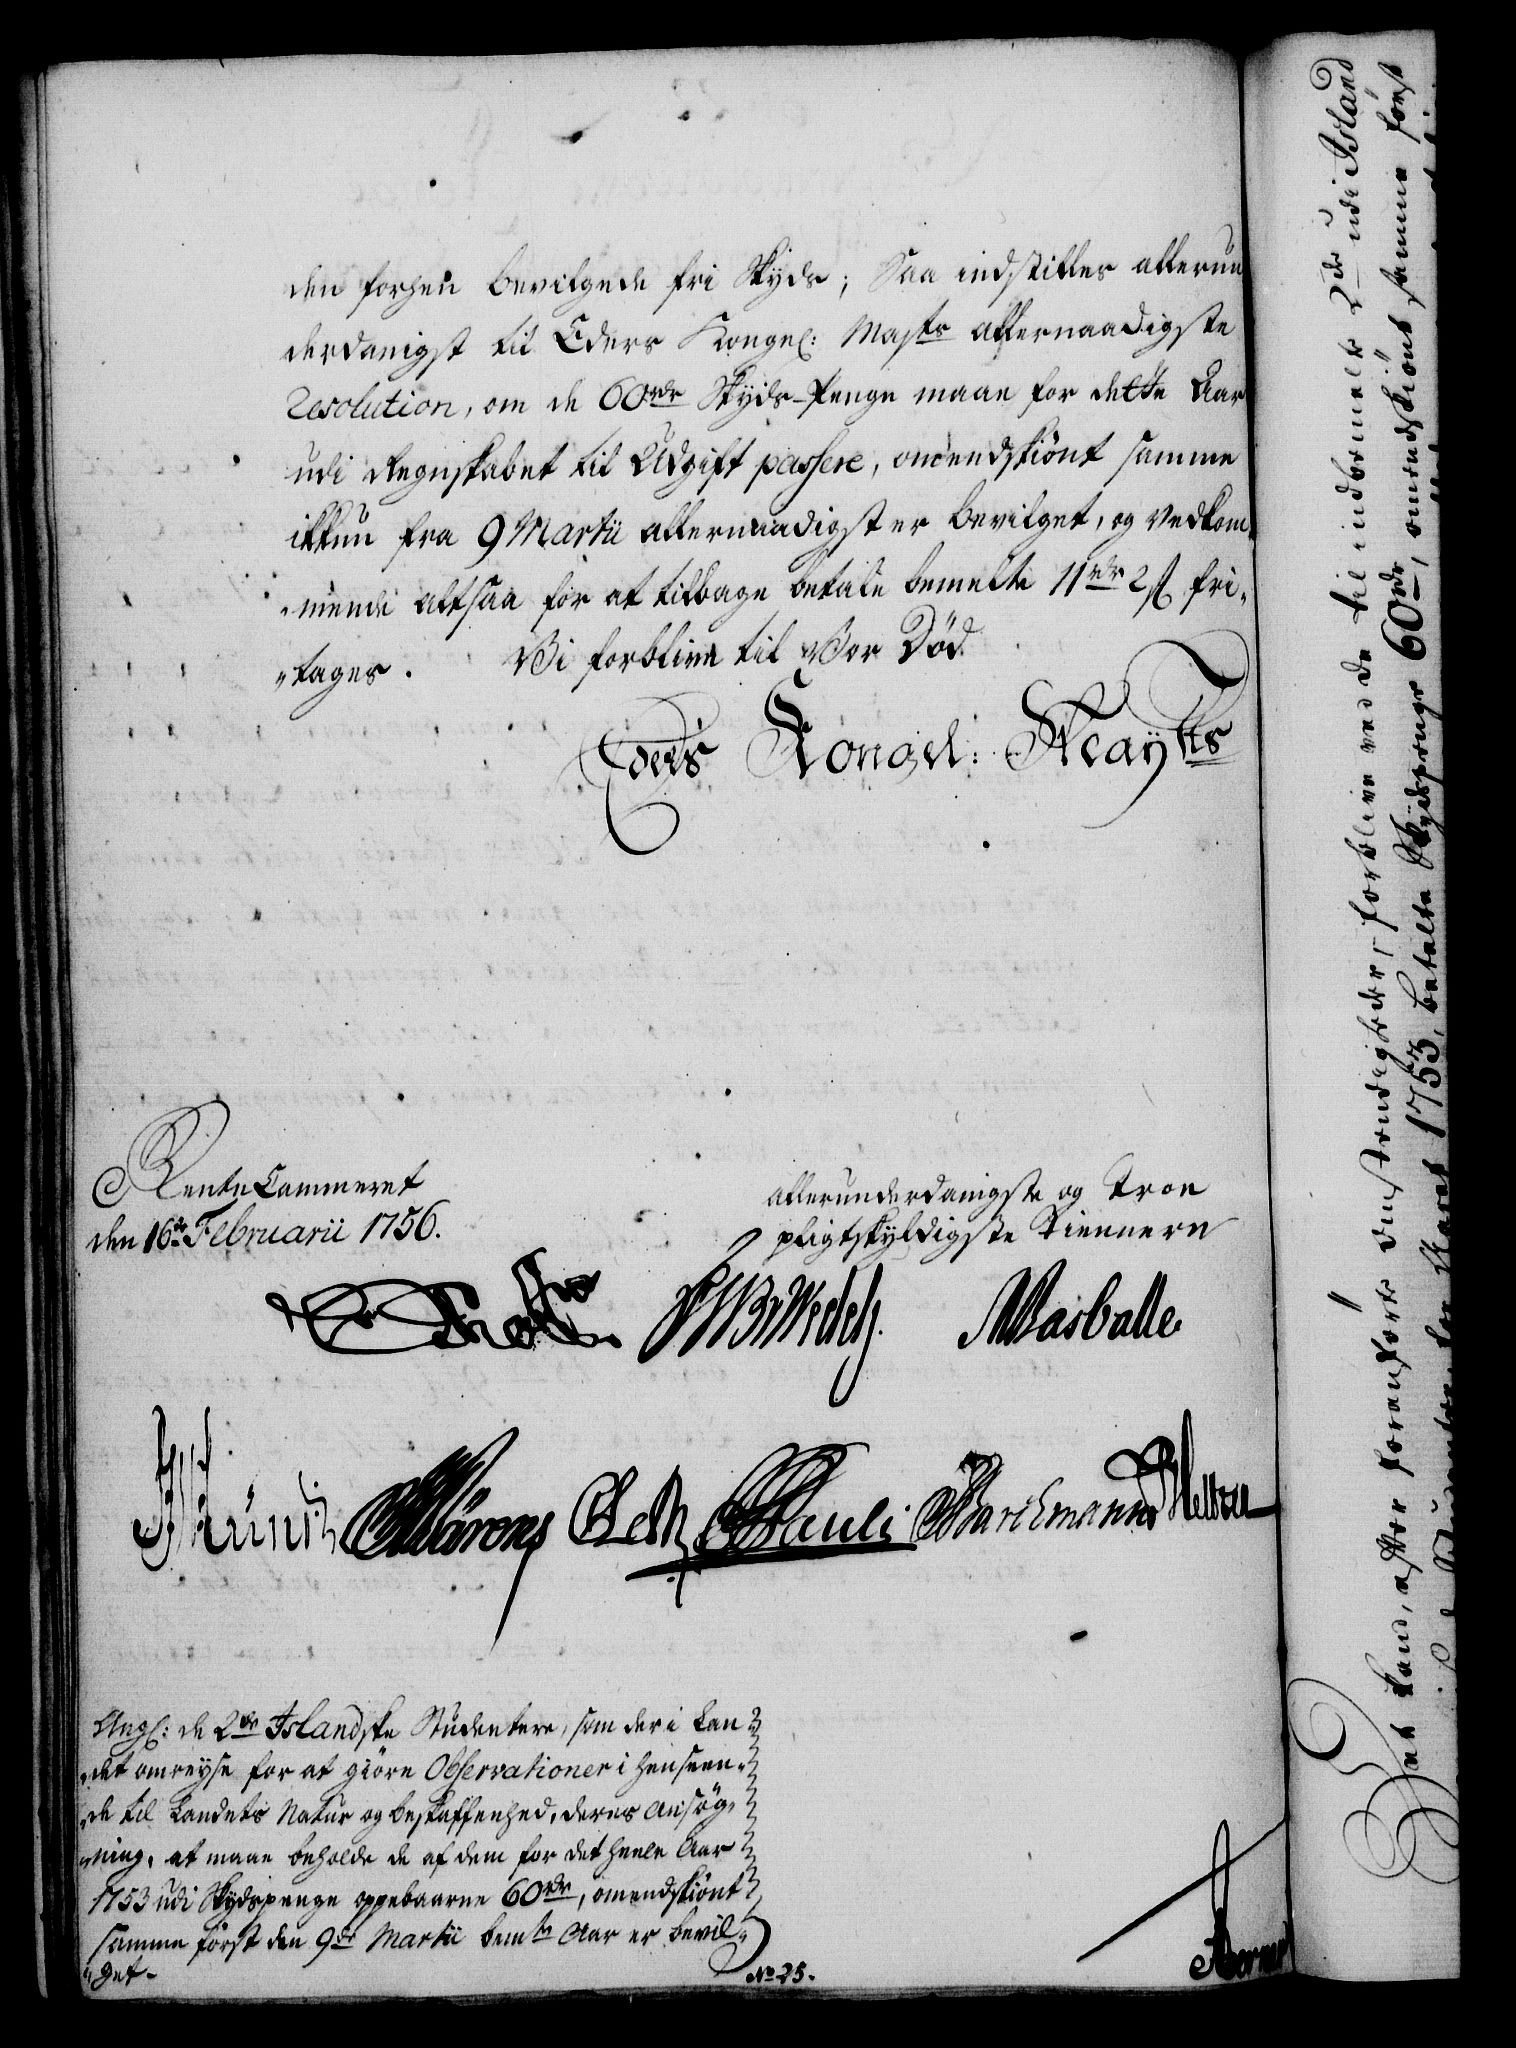 den forhen bevilgede fri Skyds; Saa indstilles allerun
derdanigst til Eders Kongel: Majts allernaadigste
Resolution, om de 60rdr Skyds-Penge maae for dette Aar
udi Regnskabet til Udgift passere, omendskiönt samme
ikkun fra 9 Martii allernaadigst er bevilget, og vedkom,
,mende altsaa for at tilbage betale bemelte 11rdr 2ß fri,
"tages. Vi forblive til Vor Död
Eders Kongel: Mayts
RenteCammeret
den 16de Februarii 1756.
allerunderdanigste og troe
pligtskyldigste Tiennere
Holst
Wedell
Masballe
Angl: de 2de Islandske Studentere, som der i Lan
,det omreyse for at giöre Observationer i henseen,
,de til Landets Natur og beskaffenhed, deres Ansög,
,ning, at maae beholde de af dem for det heele Aar
1753 udi Skydspenge oppebaarne 60rdr, omendskiönt
samme först den 9de Martii bemte Aar er bevil,
"get-
No 25.
Det kand, efter foranförte omstændigheder, forblive ved de til indbemelte 2de udi Island
for Aaret 1753, betalte Skydspenge 60rdr, omendskiönt samme först